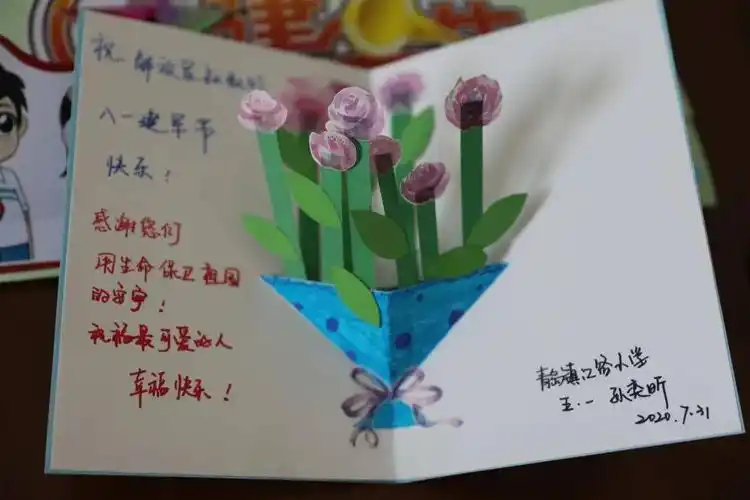 祝解放军叔叔们
八一建军节
快乐！
感谢您们
用生命保卫祖国
的安宁！
祝福最可爱的人
幸福快乐！
小学
五.一 孙
2020.7.31